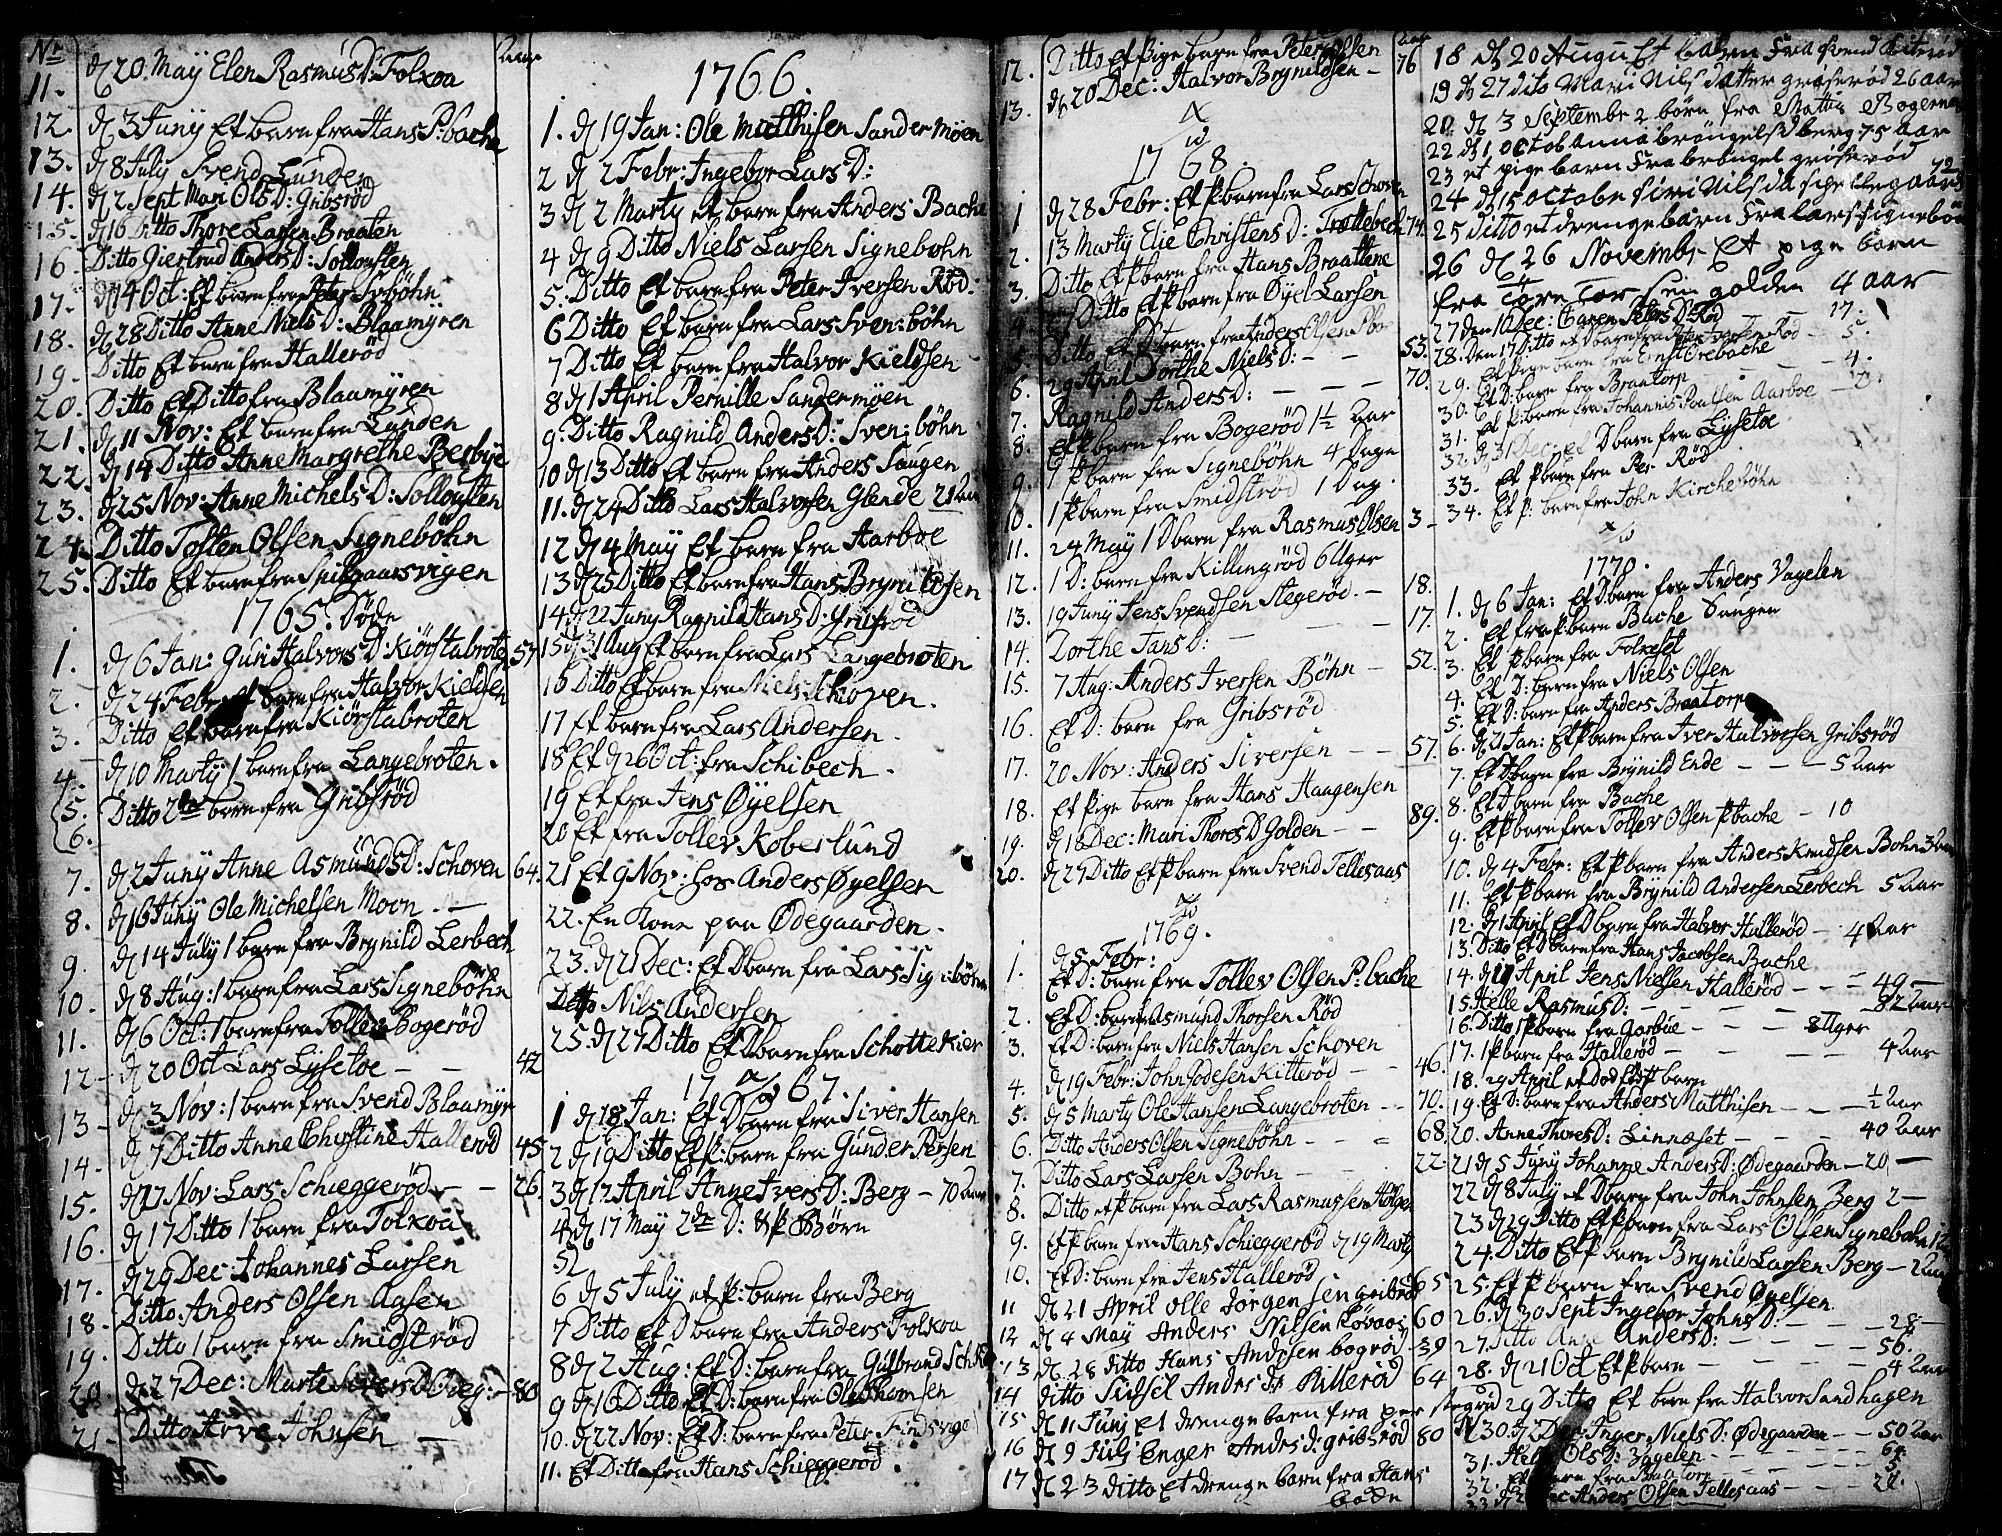 Nr
Aar
11. d 20. Maÿ Elen Rasmus D: Folkoa
12. d 3 Juny Et barn fra Hans P: bache
13. d 8 July Svend Lunden
14. d 2 Sept Mari Ols D: Gribsröd
15. d 16 Ditto Thore Larsen Braaten
16. Ditto Giertrud Anders D: Sollousten
17. d 14 Oct: Et barn fra Peter Svböhn
18. d 28 Ditto Anne Niels D: Blaamyren
19. Ditto Et barn fra Halleröd
20. Ditto Et Ditto fra Blaamyren
21. d 11 Nov: Et barn fra Lunden
22. d 14 Ditto Anne Margrethe Berbye
23. d 25 Nov: Anne Michels D: Solloysten
24. Ditto Tosten Olsen Signeböhn
25. Ditto Et barn fra Spilgaarsvigen
1765. Döde
1. d 6 Jan: Guri Halvors D: Kiörstabroten 57
2. d 24 Febr et barn fra Halvor Kieldsen
3. Ditto Et barn fra Kiörstabroten
4. d 10 Marty 1 barn fra Langebroten.
5. Ditto 2de börn fra Gribsröd
6.
7. d 2 Juny Anne Asmunds D: Schoven 64.
8. d 16 Juny Ole Michelsen Moon
9. d 14 July 1 barn fra Brynild Lerbech
10. d 8 Aug: 1 barn fra Lars Signeböhn
11. d 6 Oct: 1 barn fra Tollev Bogeröd
12 - d 20 Oct Lars Lysetoe - - 42
13 - d 3 Nov: 1 barn fra Svend Blaamyr
14 - d 7 Ditto Anne Christine Halleröd 45
15. d 17 Nov: Lars Schieggeröd - - 26.
16. d 17 Ditto 1 barn fra Folkoa
17. d 29 Dec: Johannes Larsen
18. Ditto: Anders Olsen Aasen
19. Ditto 1 barn fra Smidströd
20. d 27 Dec: Marte Sivers D Berg: - 80
21 - Ditto Arve Johnsen -
1766.
1. d 19 Jan: Ole Matthisen Sandermöen
2 d 2 Febr: Ingebor Lars D:
3 d 2 Marty et barn fra Anders Bache
4 d 9 Ditto Niels Larsen Signebøhn
5. Ditto Et barn fra Peter Iversen Röd.
6 Ditto Et barn fra Lars Sven: böhn
7 Ditto Et barn fra Halvor Kieldsen
8 d 1 April Pernille Sandermöen
9. Ditto Ragnild Anders D: Sven: böhn
10 d 13 Ditto Et barn fra Anders Saugen
11. d 24 Ditto Lars Halvorsen Glende 21 Aar
12 d 4 May Et barn fra Aarboe
13 d 25 Ditto Et barn fra Hans Brynildsen
14 d 22 Juny Ragnild Hans D: Gribsröd
15 d 31 Aug Et barn fra Lars Langebroten
16 Ditto Et barn fra Niels Schoven.
17 Et barn fra Lars Andersen.
18 Et d 26 Oct: fra Schibech.
19 Et fra Jens Øyelsen
20 Et fra Tollev Koberlund
21 Et 9 Nov: hos Anders Øyelsen
22. En Kone paa Ødegaarden.
23. d 21 Dec: Et D barn fra Lars Sign:böhn
Ditto Nils Andersen
25. d 27 Ditto Et D barn fra Schottekier
1767.
1 d 18 Jan: Et D barn fra Siver Hansen
2 d 19 Ditto Et P: barn fra Gunder Persen
3 d 12 April Anne Ivers D: Berg - 70 Aar
4 d 17 May 2de D: & P Børn
5
6 d 5 July et P: barn fra Berg
7 Ditto Et D barn fra Anders Folkoa
8 d 2 Aug: Et D: barn fra Gulbrand
9 d 16 Ditto Et D: barn fra Ole Thomsen
10. d 22 Nov: Et D: barn fra Peter
11. Et Ditto fra Hans Schieggeröd
12. Ditto Et Pige barn fra Peter Olsen
13. d 20 Dec: Halvor Brynildsen - 76
1768.
1 d 28 Febr: Et P barn fra Lars Schoven
2. 13 Marty Elie Christens D: Trættebech 74.
3. Ditto Et P barn fra Hans Braattene
4. 27 Ditto Et P barn fra Øyel Larsen
5. Ditto Et D barn fra Anders Olsen
6. 29 April Dorthe Niels D: - - 53.
7. Ragnild Anders D: - - - 70.
8. Et P barn fra Bogeröd 1½ Aar
9. 1 P barn fra Signeböhn 4 Dage
10. 1 P barn fra Smidströd 1 Dag.
11. 24 May 1 D barn fra Rasmus Olsen 3 -
12. 1 D: barn fra Killingröd 6 Uger
13. 19 Juny Jens Svendsen Stegeröd. - 18.
14. Dorthe Jans D: - - - 17.
15. 7 Aug: Anders Iversen Böhn - 52.
16. Et D: barn fra Gribsröd
17. 20 Nov: Anders Siversen - - 57.
18. Et Pige barn fra Hans Haagensen
19. d 18 Dec: Mari Thores D Golden - - 89.
20. d 27 Ditto Et P barn fra Svend Tellesaas
1769.
1. d 5 Febr:
Et D: barn fra Tollev Olsen P: bache
2. Et D: barn fra Asmund Thorsen Röd
3. Et D: barn fra Niels Hansen Schoven
4. d 19 Febr: John Jodesen Kitteröd - - 46.
5. d 5 Marty Ole Hansen Langebroten - - 70.
6. Ditto Anders Olsen Signeböhn - - - 68
7. Ditto Lars Larsen Bohn - - - 22.
8. Ditto et P barn fra Lars Rasmussen
9. Et P barn fra Hans Schieggeröd d 19 Marty
10. Et D: barn fra Jens Halleröd
11 d 21 April olle Jörgensen gribsröd 65
12 d 4 May Anders Nilsen Kövaas 60
13 d 28 ditto Hans Andrsen bogröd 39
14 ditto Sidsel Andrs dr Pilleröd 64
15 d 11 Junj et drenge barn fra per Stegröd
16 d 9 Julj Enger Andrs d: gribsröd 80
17 d 23 ditto et drenge barn fra Hans
bode
18 d 20 August et barn fra Svend
19 d 27 dito Mari Nils datter gröseröd 26 aar
20. d 3 Septembr 2 börn fra Mattis Bogerne
22 d 1 octob anna bröngelsd berg 75 aar
23 et pige barn fra bröngel gröseröd
24 d 15 octobr siri Nils da 72
25 ditto et drenge barn fra lars signebön
26 d 26 Novembr Et pige barn
fra Tore Torsen golden 4 aar
27 den 10 Dec: Caren Peters D: Röd - - 17.
28. Den 17 Ditto et D barn fra Peter Iversen Röd - 5.
29. Et Pige barn fra Ernst Örebache
30. Et D: barn fra Braatorp - - 4.
31. Et P: barn fra Johannis Poulsen Aarboe
32. d 31 Dec: et D barn fra Lysetoe
33. Et P barn fra Per Röd
34. Et P: barn fra John Kirchebøhn
1770.
1. d 6 Jan: Et D barn fra Anders Vagelen
2. Et fra P: barn Bache Saugen
3. Et P barn fra Folkestt
4. Et D: barn fra Niels Olsen
5. Et D: barn fra Anders Braatorp
6. d 21 Jan: Et P barn fra Iver Halvorsen Gribsröd
7. Et D barn fra Brynild Ende - - - 5 Aar
8. Et D barn fra Bache
9. Et P barn fra Tollev Olsen P bache - 10
10. d 4 Febr: Et P barn fra Anders Knudsen Bohn 3 Aar
11. Et P barn fra Brynild Andersen Lerbech 5 Aar
12. d 1 April Et D barn fra Halvor Halleröd - 4 Aar
13. Ditto Et D barn fra Hans Jacobsen Bache
14. d 11 April Jens Nielsen Halleröd - - - 49 -
15. Helle Rasmus D: - - - - - 82 Aar
16. Ditto 1 P barn fra Aarböe - - - 8 Uger
17. 1 P barn fra Halleröd - - - - 4 Aar
18. 29 April et Död föd P barn
19. Et D: barn fra Anders Matthisen - - - ½ Aar
20. Anne Thores D: Linnæset - - - 40 Aar
21 d 5 Juny Johanne Anders D: Ødegaarden - 20. -
22 d 8 July et D barn fra John Johnsen Berg 2 -
23 d 29 Ditto Et P barn fra Lars Olsen Signebohn 1 Aar
24. Ditto Et P barn Brynild Larsen Berg - 2 Aar
25. Et P barn fra Svend Øyelsen
26. d 30 Sept Ingebor Johns D: - - - 28 -
27. Ditto Anne Anders D: - - - 56.
28. d 21 Oct Et P barn - - - - 4 Aar
29 Ditto Et barn fra Halvor Sandhagen
30. d 2 Dec: Inger Niels D: Ødegaarden - - 50 Aar
31. Ols D: Vagelen - - - - 64.
32. Et barn fra Braatorp - - - 5.
33 d Dec Anders Olsen Tellesaas - - -